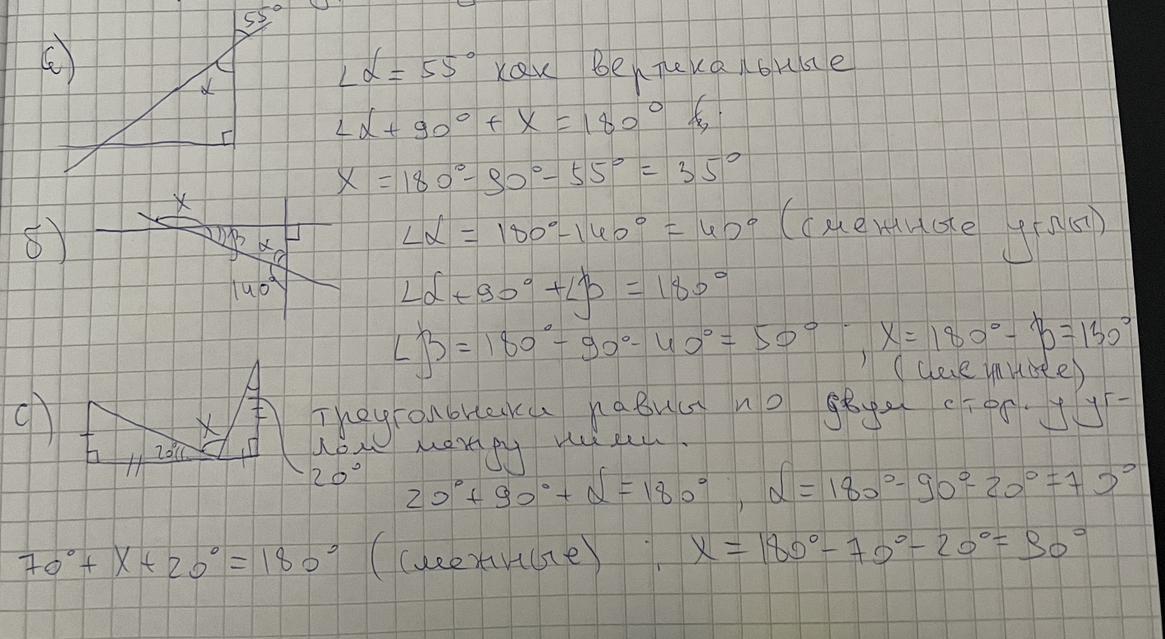 55°
а)
α
∠α = 55° как вертикальные
∠α + 90° + x = 180°
x = 180° - 90° - 55° = 35°
x
б)
β α
140°
∠α = 180° - 140° = 40° (смежные углы)
∠α + 90° + ∠β = 180°
∠β = 180° - 90° - 40° = 50° ; x = 180° - β = 130°
(смежные)
c)
x
20°
20°
треугольники равны по двум стор. у уг-
лом между ними.
20° + 90° + α = 180° ; α = 180° - 90° - 20° = 70°
70° + x + 20° = 180° (смежные) ; x = 180° - 70° - 20° = 90°